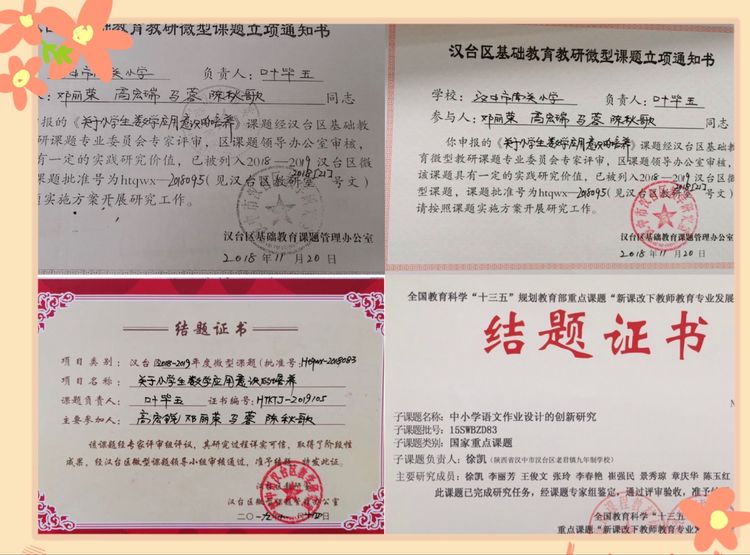 基础教育教研微型课题立项通知书
小学 负责人:叶毕五
人:邓丽荣 高宏瑞 马蓉 陈秋歌 同志
申报的《关于小学生数学应用意识的培养》课题经汉台区基础教
研课题专业委员会专家评审,区课题领导办公室审核,
有一定的实践研究价值,已被列入2018—2019 汉台区微
课题批准号为htqwx—2018095(见汉台区教研室 2018[21] 号文)
实施方案开展研究工作。
汉台区基础教育课题管理办公室
2018 年 11 月 20 日
汉台区基础教育教研微型课题立项通知书
学校: 小学 负责人:叶毕五
参与人:邓丽荣 高宏瑞 马蓉 陈秋歌 同志
你申报的《关于小学生数学应用意识的培养》课题经汉台区基础
育微型教研课题专业委员会专家评审,区课题领导办公室审核,
该课题具有一定的实践研究价值,已被列入2018—2019 汉台区
型课题,课题批准号为htqwx—2018095(见汉台区教研室 2018[21] 号文)
请按照课题实施方案开展研究工作。
汉台区基础教育课题管理办公室
2018 年 11 月 20 日
结题证书
项目类别: 汉台区2018-2019年度微型课题(批准号:Htqwx-2018083
项目名称: 关于小学生数学应用意识的培养
课题负责人: 叶毕五 证书编号:HTKTJ-2019105
主要参加人: 高宏锐 邓丽荣 马蓉 陈秋歌
该课题经专家评审组评议,其研究过程详实可信,取得了阶段性
成果,经汉台区微型课题领导小组审核通过,准予结题,特发此证。
汉台区微型课题领导小组办公室
二〇一九年
全国教育科学“十三五”规划教育部重点课题“新课改下教师教育专业发展
结题证书
子课题名称: 中小学语文作业设计的创新研究
子课题批号: 15SWBZD83
子课题类别: 国家重点课题
子课题负责人: 徐凯(陕西省汉中市汉台区老君镇九年制学校)
主要研究成员: 徐凯 李丽芳 王俊文 张玲 李春艳 崔强民 景秀琼 章庆华 陈玉红
此课题已完成研究任务,经课题专家组鉴定,通过评审验收,准予
全国教育科学“十三五
重点课题“新课改下教师教育专业